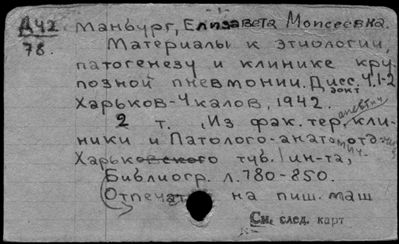 Д42
78.
Манбург, Елизавета Моисеевна.
Материалы к этиологии,
патогенезу и клинике кру-
позной пневмонии. Дисс. Ч.1-2
докт
Харьков-Чкалов, 1942.
2 т. (Из фак. терапевтич. кли-
ники и Патолого-анатомич. отд-ния
Харьковского туб. ин-та,
Библиогр. л. 780-850.
Отпечат на пиш. маш
См. след. карт